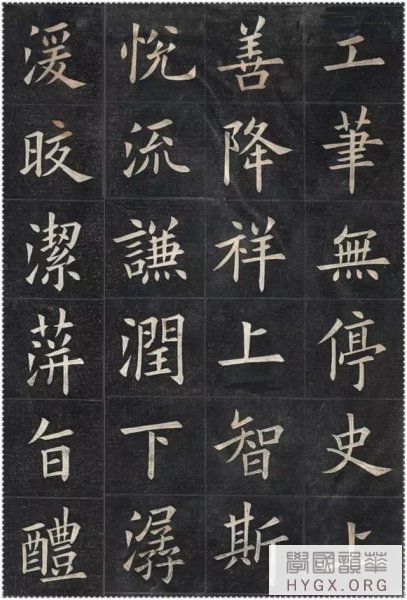 工筆無停史上
善降祥上智斯
悅流謙潤下潺
湲晈潔蓱旨醴
華韻國學
HYGX.ORG